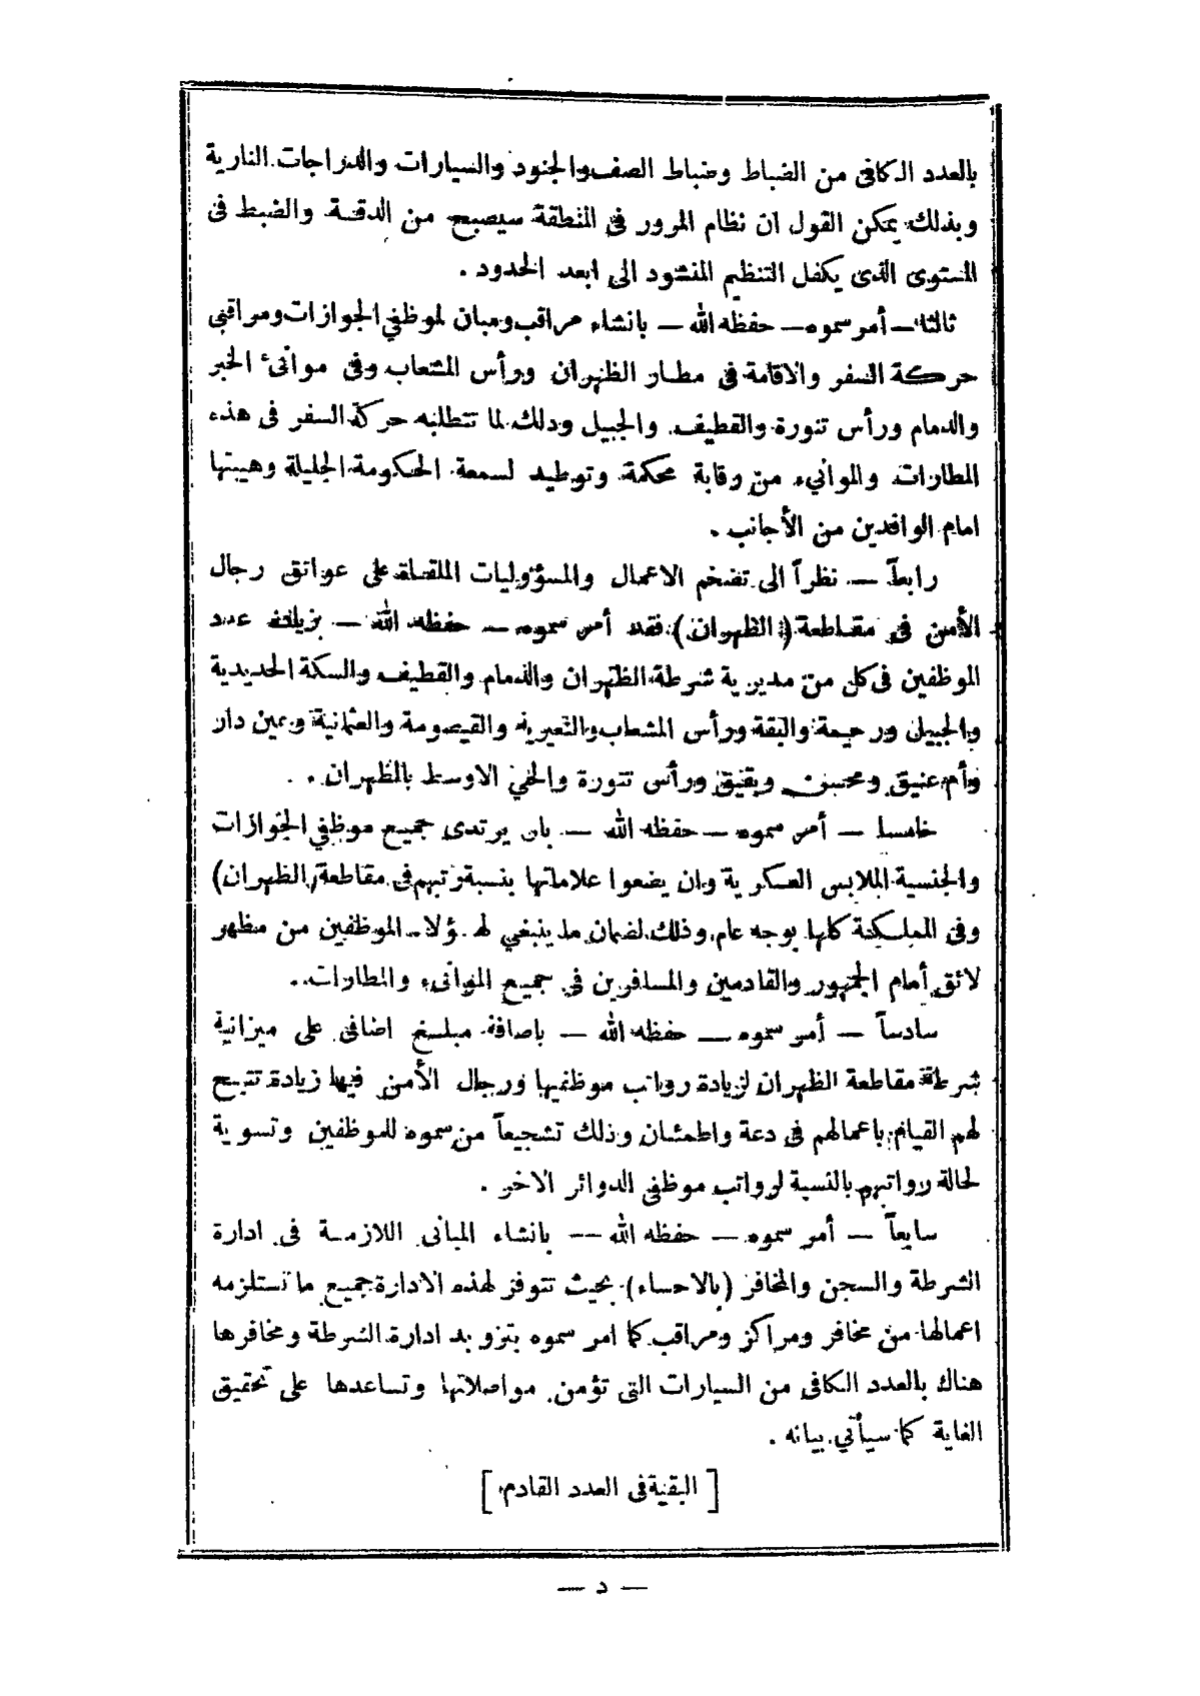 بالعدد الكافي من الضباط وضباط الصف والجنود والسيارات والدراجات النارية
وبذلك يمكن القول ان نظام المرور في المنطقة سيصبح من الدقة والضبط في
المستوى الذى يكفل التنظيم المنشود الى ابعد الحدود .
ثالثا — أمر سموه — حفظه الله — بانشاء مراقب ومبان لموظفي الجوازات ومراقبي
حركة السفر والاقامة في مطار الظهران ورأس المشعاب وفي موانىء الخبر
والدمام ورأس تنورة والقطيف والجبيل وذلك لما تتطلبه حركة السفر في هذه
المطارات والموانيء من رقابة محكمة وتوطيد لسمعة الحكومة الجليلة وهيبتها
امام الوافدين من الأجانب .
رابعاً — نظراً الى تضخم الاعمال والمسؤوليات الملقاة على عواتق رجال
الأمن في مقاطعة ( الظهران ) فقد أمر سموه — حفظه الله — بزيادة عدد
الموظفين في كل من مديرية شرطة الظهران والدمام والقطيف والسكة الحديدية
والجبيل ورحيمة والبقة ورأس المشعاب والنعيرية والقيصومة والعثمانية وعين دار
وأم عنيق ومحسن وبقيق ورأس تنورة والحي الاوسط بالظهران .
خامسا — أمر سموه — حفظه الله — بان يرتدى جميع موظفي الجوازات
والجنسية الملابس العسكرية وان يضعوا علاماتها بنسبة رتبهم في مقاطعة (الظهران)
وفي المملكة كلها بوجه عام وذلك لضمان ما ينبغي لهؤلاء الموظفين من مظهر
لائق أمام الجمهور والقادمين والمسافرين في جميع الموانىء والمطارات .
سادساً — أمر سموه — حفظه الله — باضافة مبلغ اضافى على ميزانية
شرطة مقاطعة الظهران لزيادة رواتب موظفيها ورجال الأمن فيها زيادة تتيح
لهم القيام باعمالهم في دعة واطمئنان وذلك تشجيعاً من سموه للموظفين وتسوية
لحالة رواتبهم بالنسبة لرواتب موظفى الدوائر الاخر .
سابعاً — أمر سموه — حفظه الله — بانشاء المبانى اللازمة في ادارة
الشرطة والسجن والمخافر (بالاحساء) بحيث تتوفر لهذه الادارة جميع ما تستلزمه
اعمالها من مخافر ومراكز ومراقب كما امر سموه بتزويد ادارة الشرطة ومخافرها
هناك بالعدد الكافى من السيارات التى تؤمن مواصلاتها وتساعدها على تحقيق
الغاية كما سيأتي بيانه .
[ البقية في العدد القادم ]
— د —